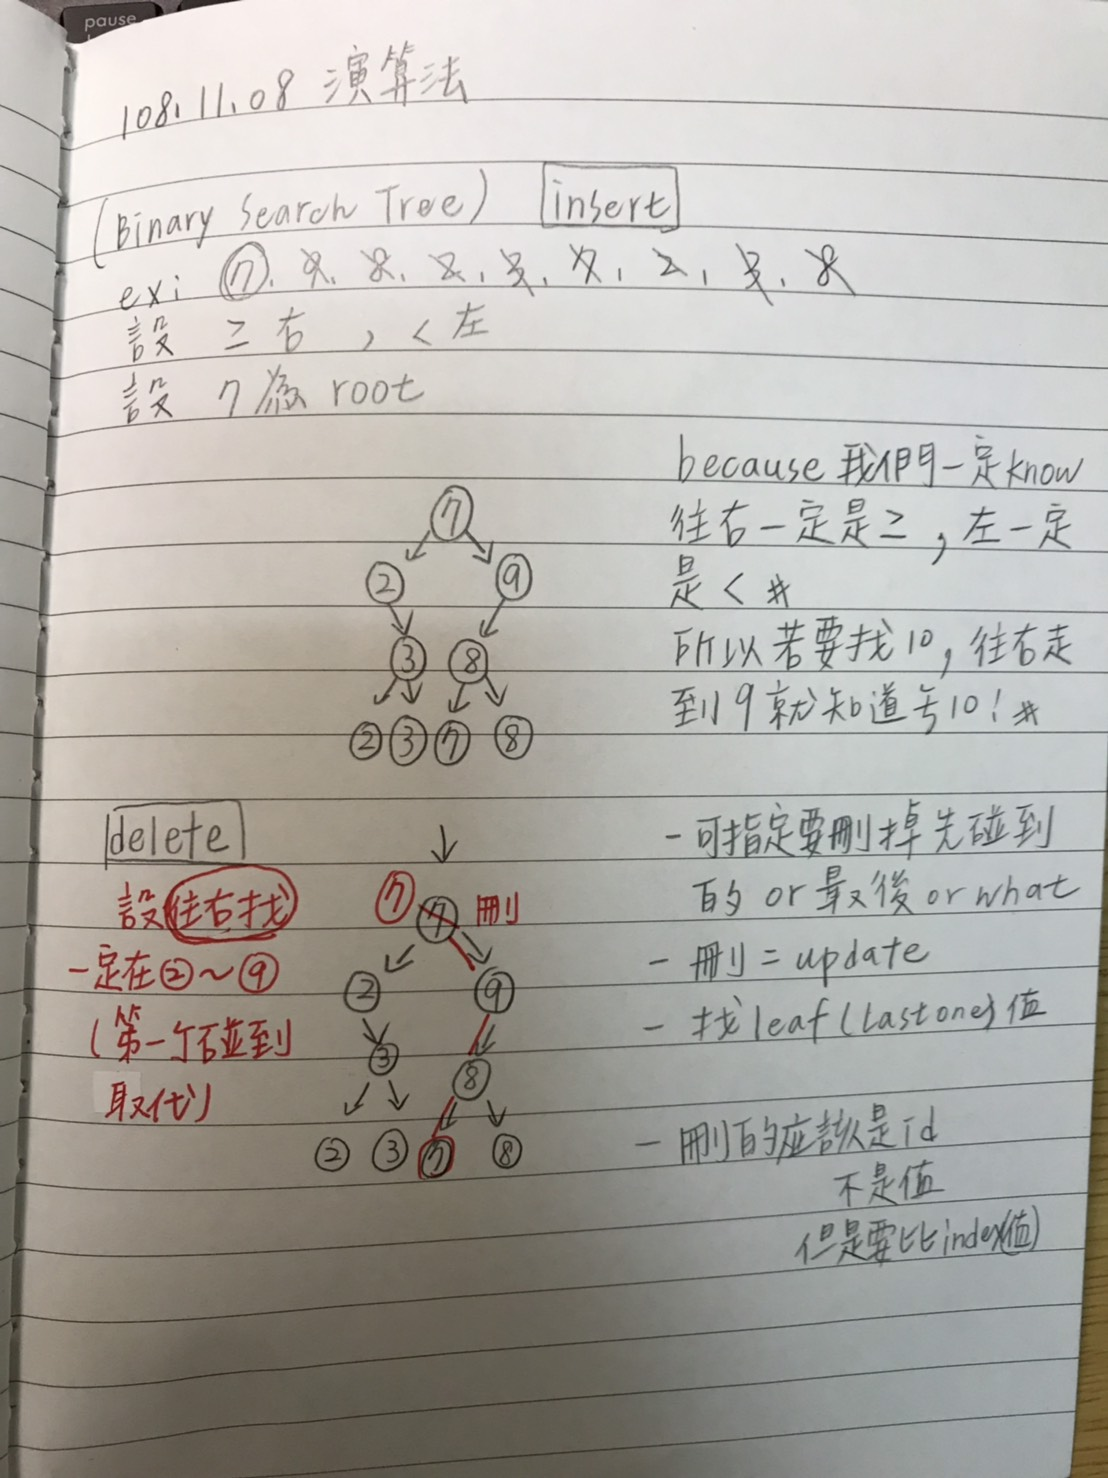 pause
108.11.08 演算法
(Binary Search Tree) insert
ex: 7, 9, 8, 2, 3, 7, 2, 3, 8
設 ≥ 右 , < 左
設 7 為 root
because 我們一定know
往右一定是≥ , 左一定
是 < #
所以若要找10, 往右走
到9就知道ㄎ10! #
7
2 9
3 8
2 3 7 8
delete
設往右找
一定在②~⑨
(第一個碰到
取代)
7 7 刪
2 9
3 8
2 3 7 8
- 可指定要刪掉先碰到
的 or 最後 or what
- 刪 = update
- 找leaf (last one) 值
- 刪的应該是id
不是值
但是要比index(值)